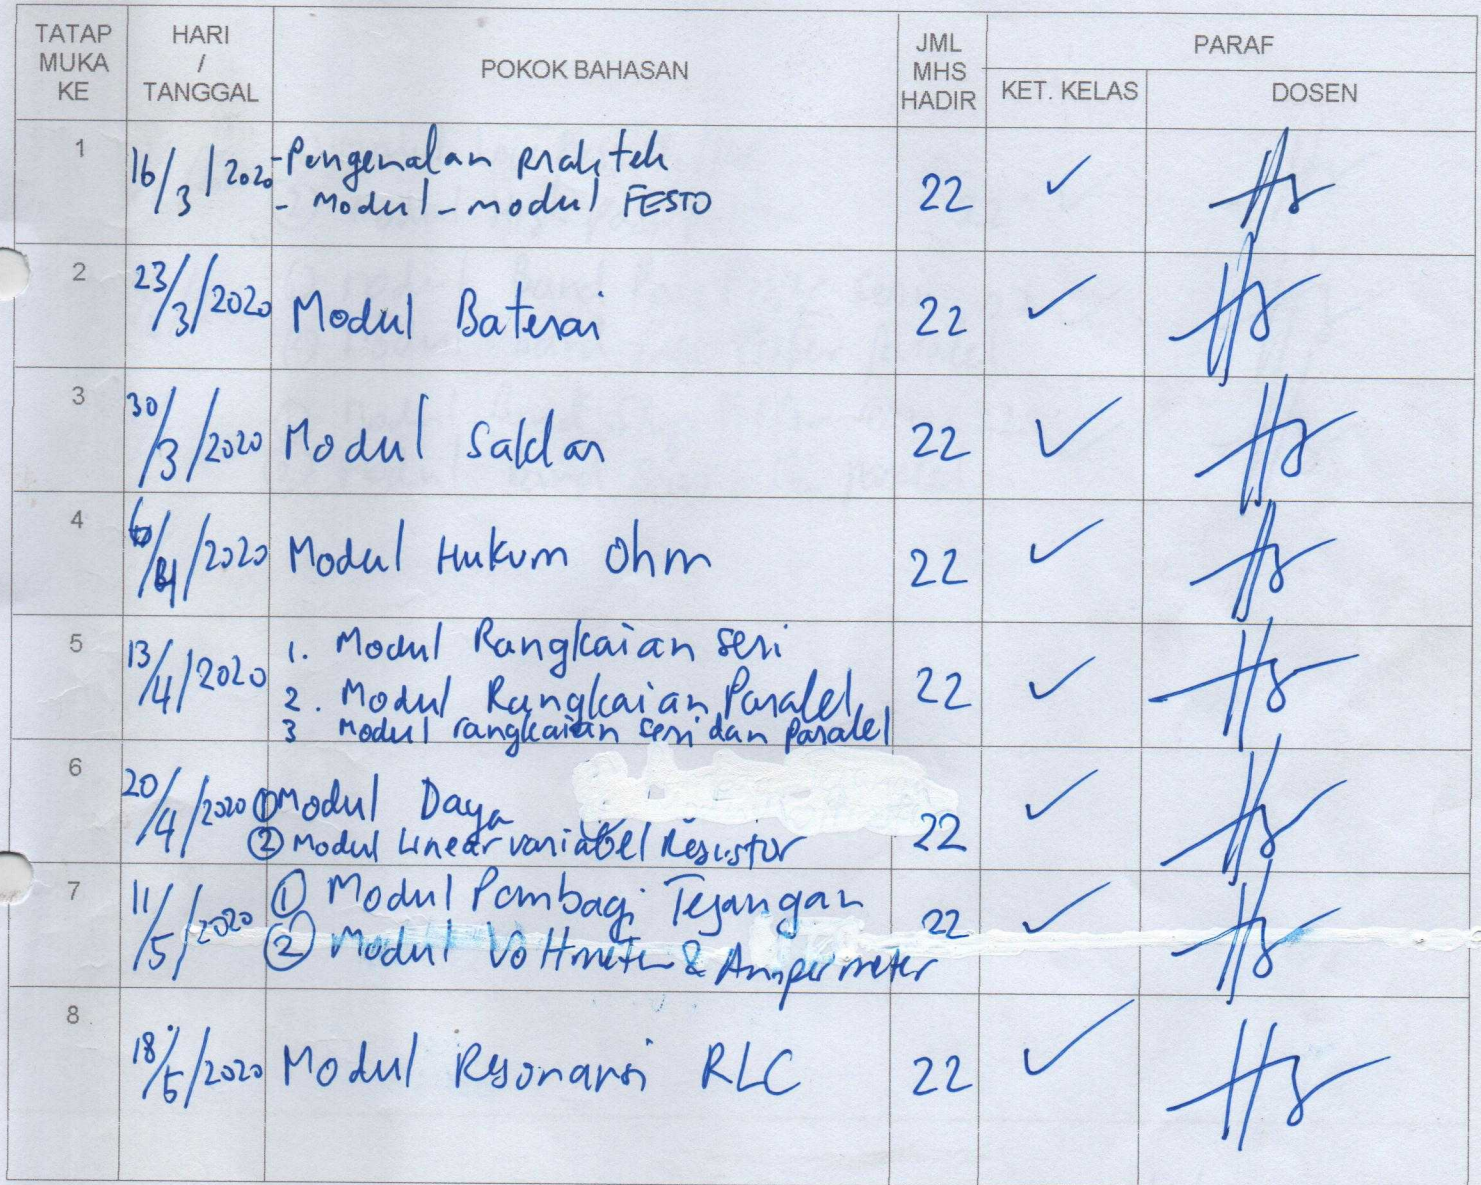 TATAP MUKA KE
HARI / TANGGAL
POKOK BAHASAN
JML MHS HADIR
PARAF
KET. KELAS
DOSEN
1
16/3/2020
- Pengenalan praktek
- Modul-modul FESTO
22
2
23/3/2020
Modul Baterai
22
3
30/3/2020
Modul Saklar
22
4
6/4/2020
Modul Hukum Ohm
22
5
13/4/2020
1. Modul Rangkaian seri
2. Modul Rangkaian Paralel
3 Modul rangkaian seri dan paralel
22
6
20/4/2020
① Modul Daya
② Modul Linear variabel Resistor
22
7
11/5/2020
① Modul Pembagi Tegangan
② Modul Voltmeter & Ampermeter
22
8
18/5/2020
Modul Resonansi RLC
22